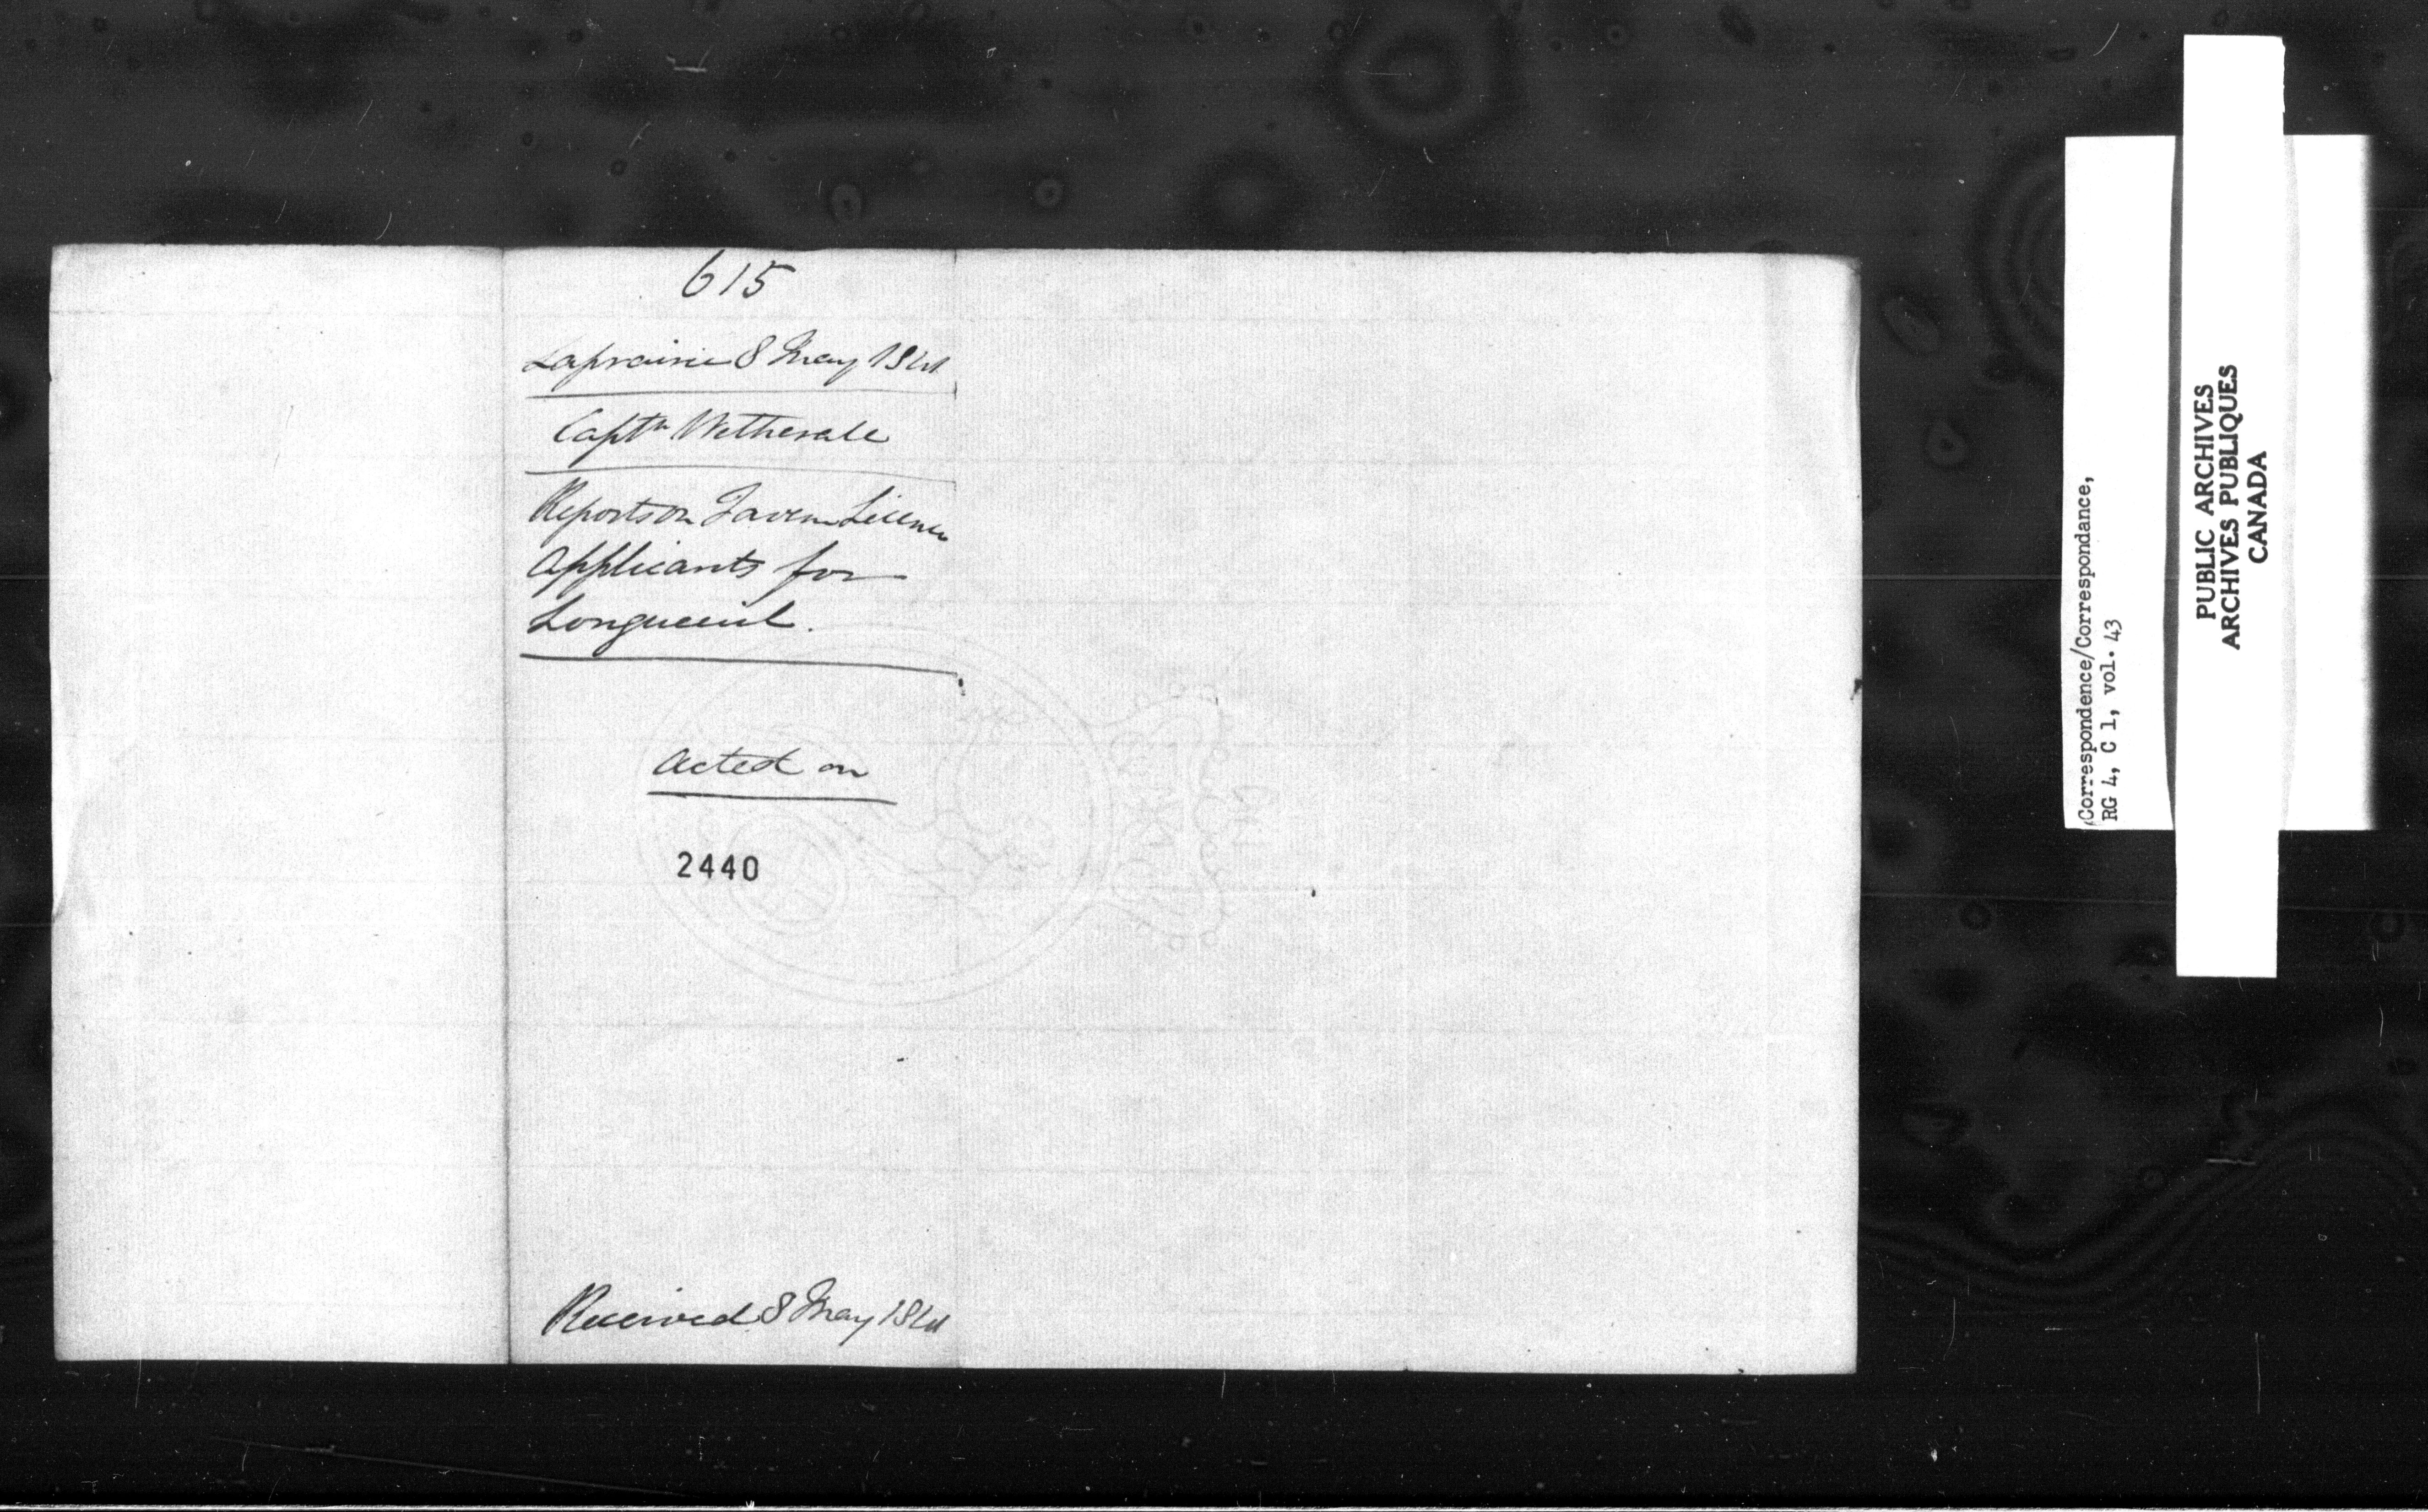 615
Laprairie 8 May 1841
Captn Wetherall
Reports on Tavern Licence
Applicants for
Longueuil.
Acted on
2440
Received 8 May 1841
Correspondence/Correspondance,
RG 4, C 1, vol. 43
PUBLIC ARCHIVES
ARCHIVES PUBLIQUES
CANADA